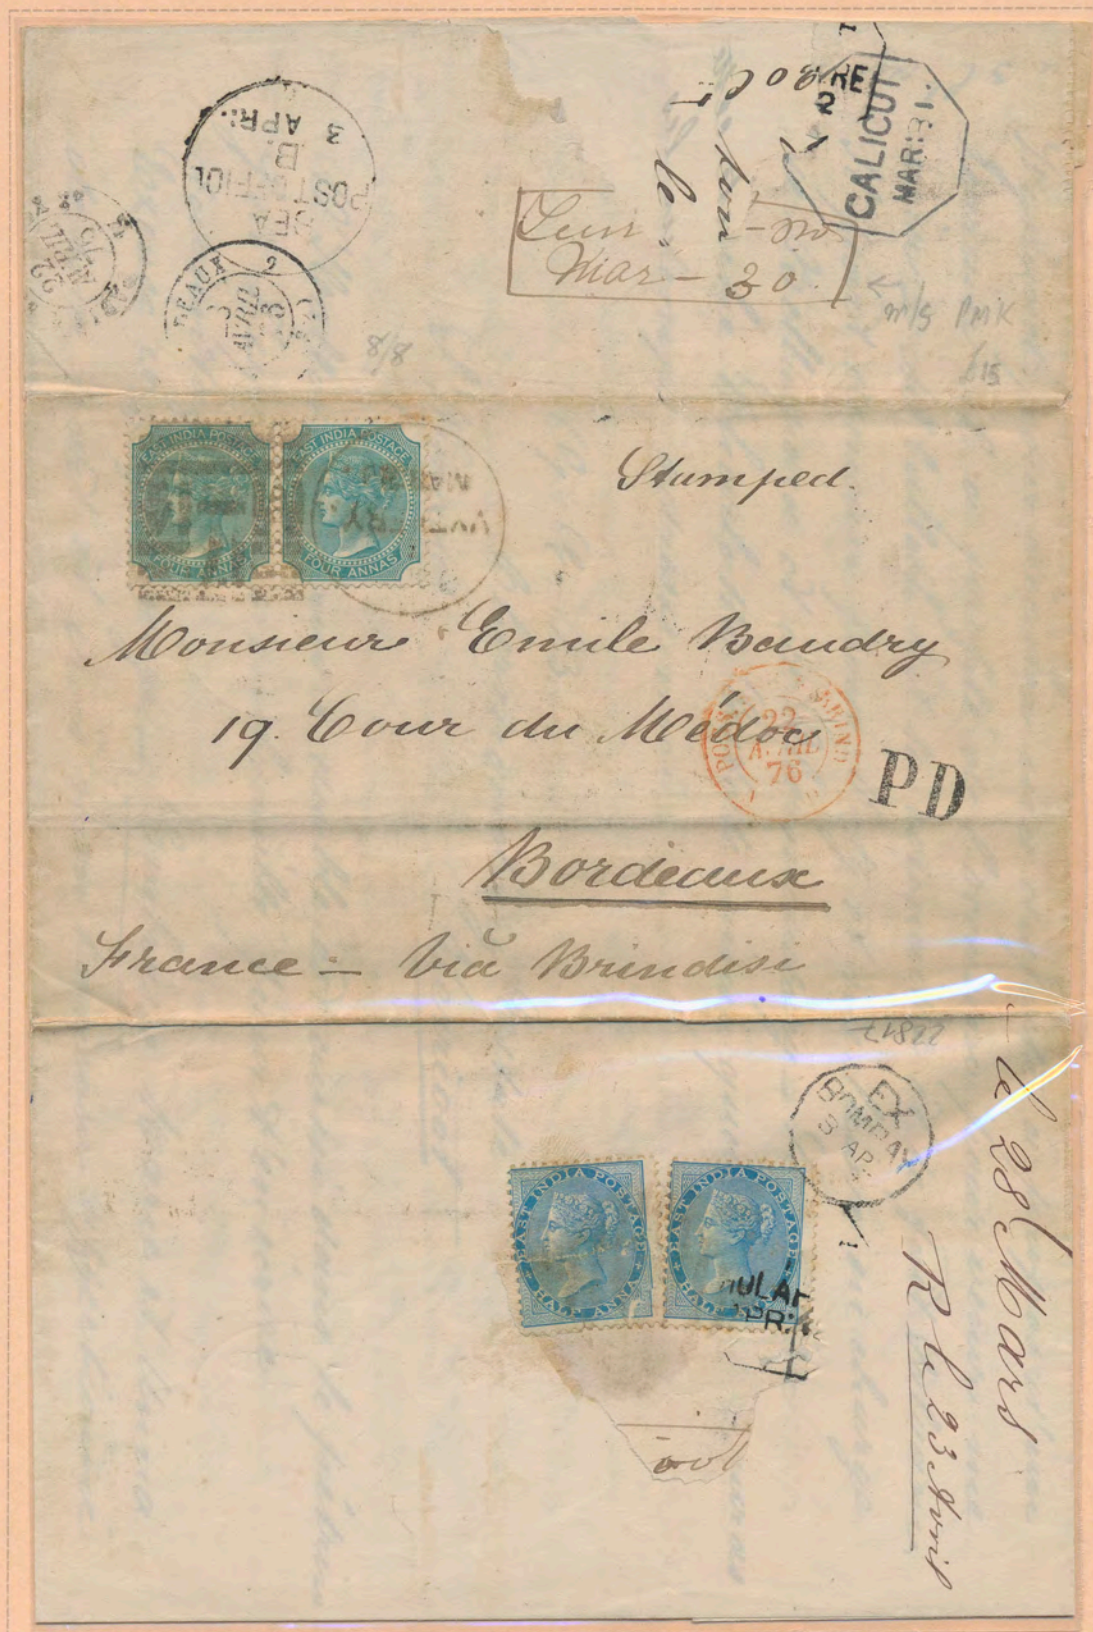 CALICUT
MAR:31.
SEA
POST OFFICE
B.
3 APRI.
EAUX
AVRIL
22
AVRIL
76
le
Mar - 30
m/s PMK
£15
8/8
EAST INDIA POSTAGE
FOUR ANNAS
EAST INDIA POSTAGE
FOUR ANNAS
Stamped.
Monsieur Emile Baudry
19. Cour du Médoc
22
AVRIL
76
PD
Bordeaux
France - Viâ Brindisi
22817
EX
BOMBAY
3 AP
EAST INDIA POSTAGE
HALF ANNA
EAST INDIA POSTAGE
HALF
le 28 Mars
R le 23 Avril